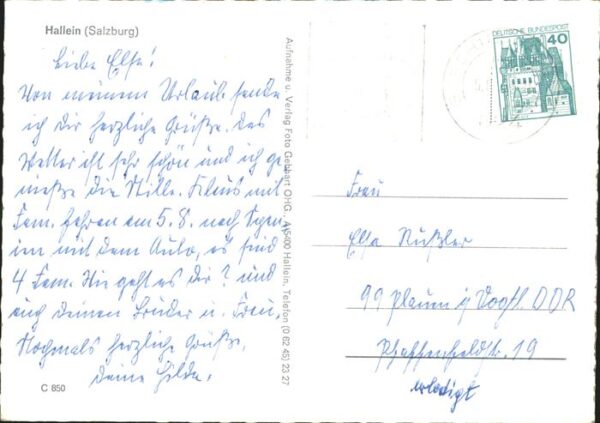 Hallein (Salzburg)
Liebe Elsa!
Von meinem Urlaub sende
ich Dir herzliche Grüße. Das
Wetter ist sehr schön und ich ge-
nieße die Stille. Klaus mit
Fam. fahren am 5.8. nach Span-
ien mit dem Auto, es sind
4 Fam. Wie geht es Dir? und
auch Deinem Bruder u. Frau.
Nochmals herzliche Grüße.
Deine Hilde.
C 850
Aufnahme u. Verlag Foto Gebhart OHG., A-5400 Hallein, Telefon (0 62 45) 23 27
DEUTSCHE BUNDESPOST
40
Frau
Elsa Nüßler
99 Plauen i/Vogtl. DDR
Pfaffenfeldstr. 19
erledigt